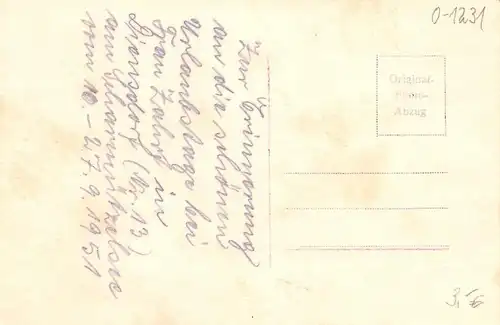 Zur Erinnerung
an die schönen
Urlaubstage bei
Frau Zahn in
Diensdorf (Nr. 13)
am Scharmützelsee
vom 10. - 27.9.1951
0-1231
Original-
Photo-
Abzug